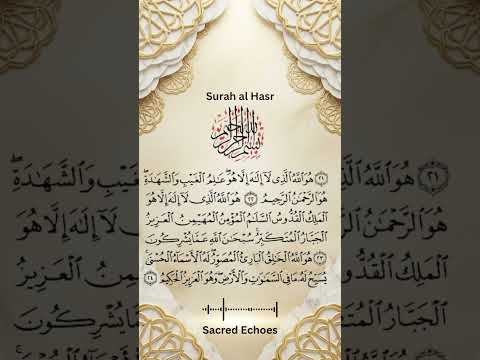 Surah al Hasr
بِسْمِ ٱللَّهِ ٱلرَّحْمَٰنِ ٱلرَّحِيمِ
٢١ هُوَ ٱللَّهُ ٱلَّذِى لَآ إِلَٰهَ إِلَّا هُوَ ۖ عَٰلِمُ ٱلْغَيْبِ وَٱلشَّهَٰدَةِ ۖ
هُوَ ٱلرَّحْمَٰنُ ٱلرَّحِيمُ ٢٢ هُوَ ٱللَّهُ ٱلَّذِى لَآ إِلَٰهَ إِلَّا هُوَ
ٱلْمَلِكُ ٱلْقُدُّوسُ ٱلسَّلَٰمُ ٱلْمُؤْمِنُ ٱلْمُهَيْمِنُ ٱلْعَزِيزُ
ٱلْجَبَّارُ ٱلْمُتَكَبِّرُ ۚ سُبْحَٰنَ ٱللَّهِ عَمَّا يُشْرِكُونَ
٢٣ هُوَ ٱللَّهُ ٱلْخَٰلِقُ ٱلْبَارِئُ ٱلْمُصَوِّرُ ۖ لَهُ ٱلْأَسْمَآءُ ٱلْحُسْنَىٰ ۚ
يُسَبِّحُ لَهُۥ مَا فِى ٱلسَّمَٰوَٰتِ وَٱلْأَرْضِ ۖ وَهُوَ ٱلْعَزِيزُ ٱلْحَكِيمُ ٢٤
Sacred Echoes